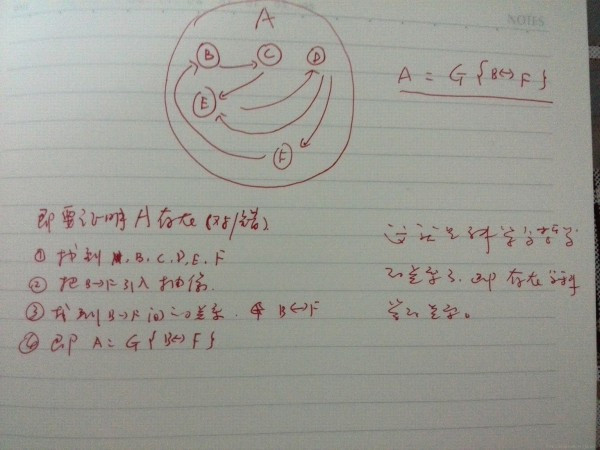 NOTES
A
B
C
D
E
F
A = G {B↔F}
即要证明 A 存在 (对/错)
① 找到 A. B. C. D. E. F
② 把 B→F 引入抽象.
③ 找到 B→F 间的差异. 即 B↔F
④ 即 A = G {B↔F}
这就是科学
差异 即 存在
差异。